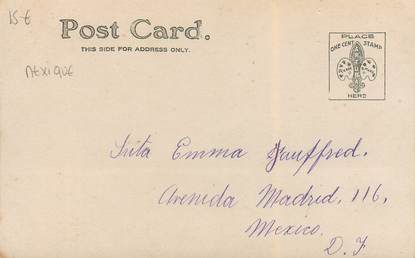 15 €
Post Card.
THIS SIDE FOR ADDRESS ONLY.
Mexique
PLACE
ONE CENT STAMP
HERE
Srita Emma Jauffred.
Avenida Madrid, 116,
Mexico.
D. F.